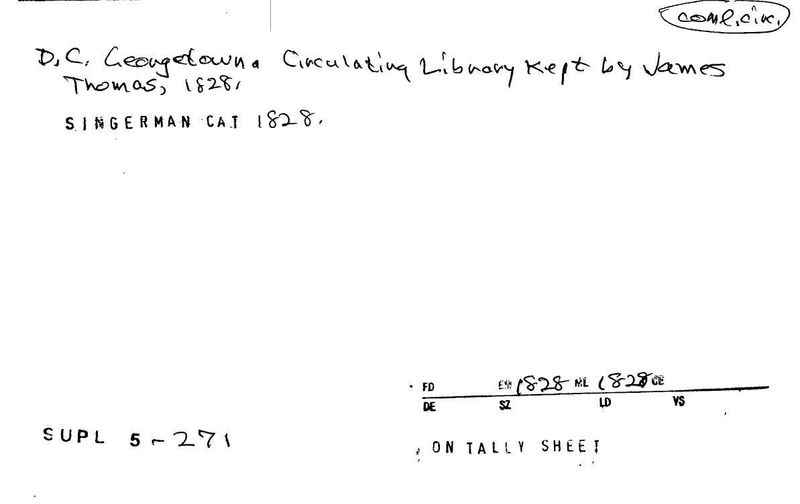 coml. cir.
D.C. Georgetown. Circulating Library Kept by James
Thomas, 1828.
SINGERMAN CAT 1828.
FD EM 1828 ML 1828 CE
DE SZ LD VS
SUPL 5-271
ON TALLY SHEET